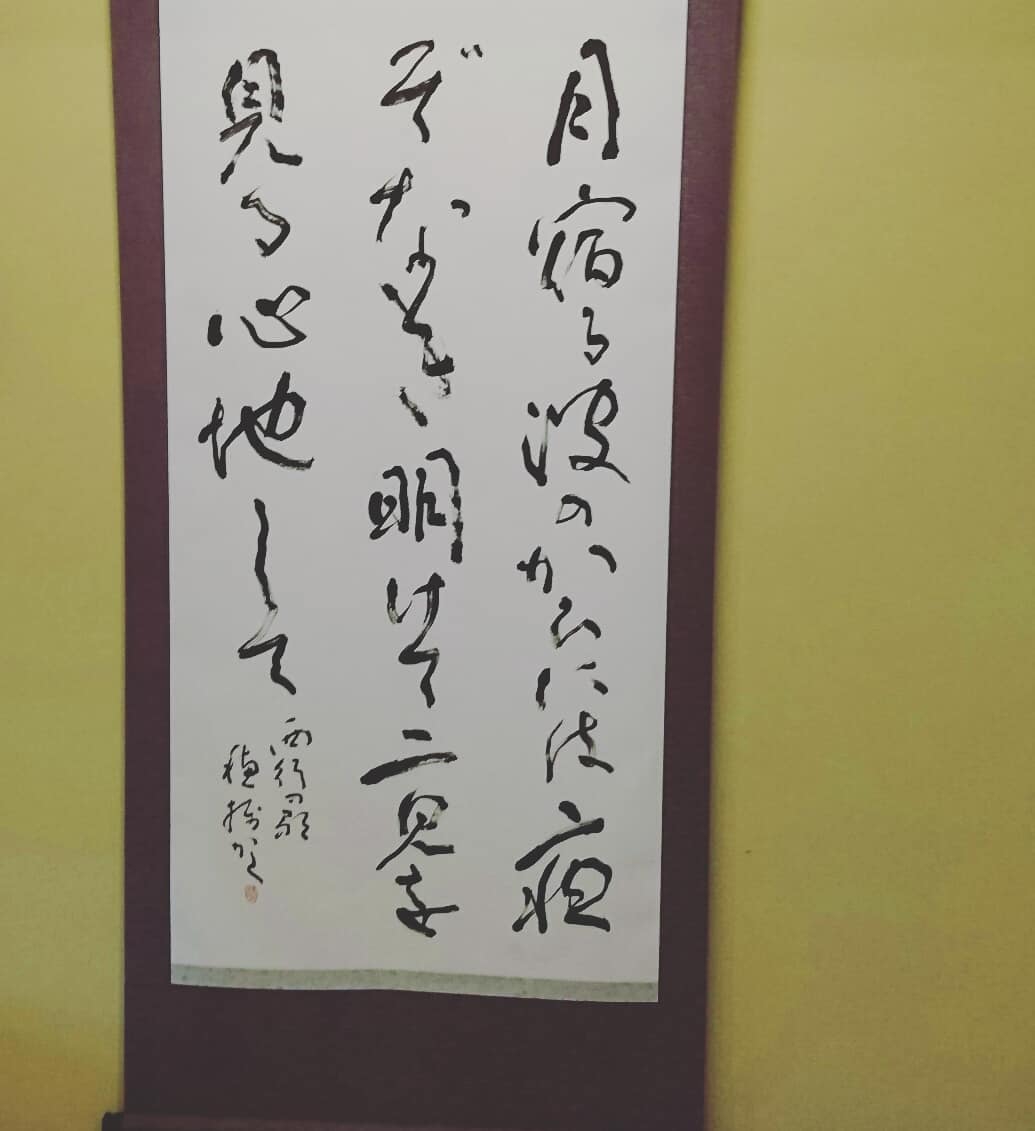 月宿る波のかひには夜
ぞなき明けて二見を
見る心地して
西行の歌
かく